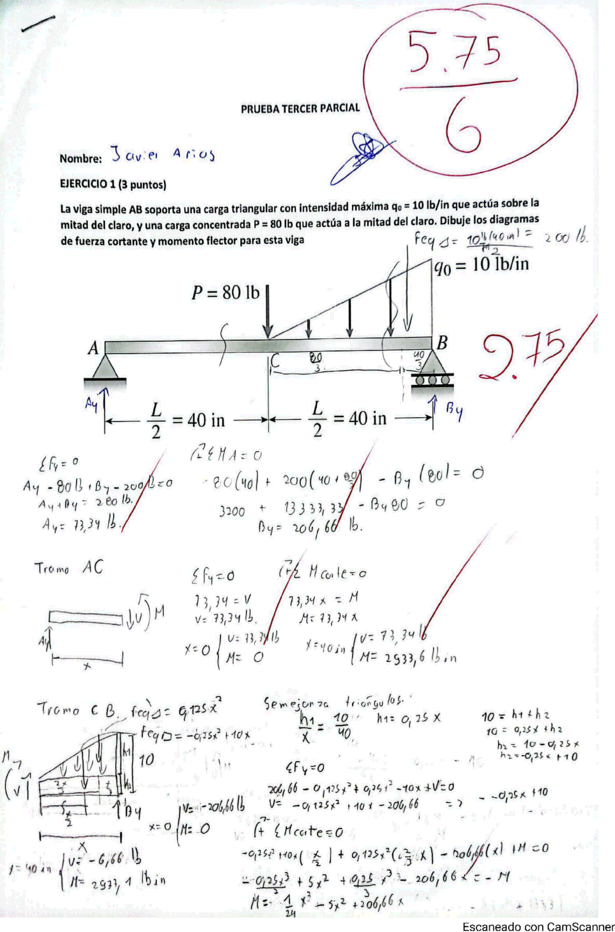 5.75
6
PRUEBA TERCER PARCIAL
Nombre: Javier Arias
EJERCICIO 1 (3 puntos)
La viga simple AB soporta una carga triangular con intensidad máxima q₀ = 10 lb/in que actúa sobre la
mitad del claro, y una carga concentrada P = 80 lb que actúa a la mitad del claro. Dibuje los diagramas
de fuerza cortante y momento flector para esta viga
Feq Δ = 10 lb/in (40 in) / 2 = 200 lb.
q₀ = 10 lb/in
P = 80 lb
A
B
C
80/3
40/3
Ay
By
L/2 = 40 in
L/2 = 40 in
2.75
ΣFy = 0
Ay - 80 lb + By - 200 lb = 0
Ay + By = 280 lb.
Ay = 73,34 lb.
ΣMA = 0
80(40) + 200(40 + 80/3) - By (80) = 0
3200 + 13333,33 - By 80 = 0
By = 206,66 lb.
Tramo AC
Ay
V
M
x
ΣFy = 0
73,34 = V
V = 73,34 lb.
x = 0 { V = 73,34 lb
M = 0
ΣM corte = 0
73,34 x = M
M = 73,34 x
x = 40 in { V = 73,34 lb
M = 2933,6 lb in
Tramo CB
feq Δ = 0,125x²
Feq □ = -0,25x² + 10x
M
V
h1
10
By
x/2
x
x = 0 { V = -206,66 lb
M = 0
x = 40 in { V = -6,66 lb
M = 2933,1 lb in
Semejanza triángulos.
h1/x = 10/40 h1 = 0,25 x
10 = h1 + h2
10 = 0,25x + h2
h2 = 10 - 0,25x
h2 = -0,25x + 10
ΣFy = 0
206,66 - 0,125x² + 0,25x² - 10x + V = 0
V = -0,125x² + 10x - 206,66 => - -0,25x + 10
ΣM corte = 0
-0,25x² + 10x (x/2) + 0,125x² (2/3 x) - 206,66(x) + M = 0
- 0,25x³/2 + 5x² + 0,25/3 x³ - 206,66x = - M
M = 1/24 x³ - 5x² + 206,66x
Escaneado con CamScanner